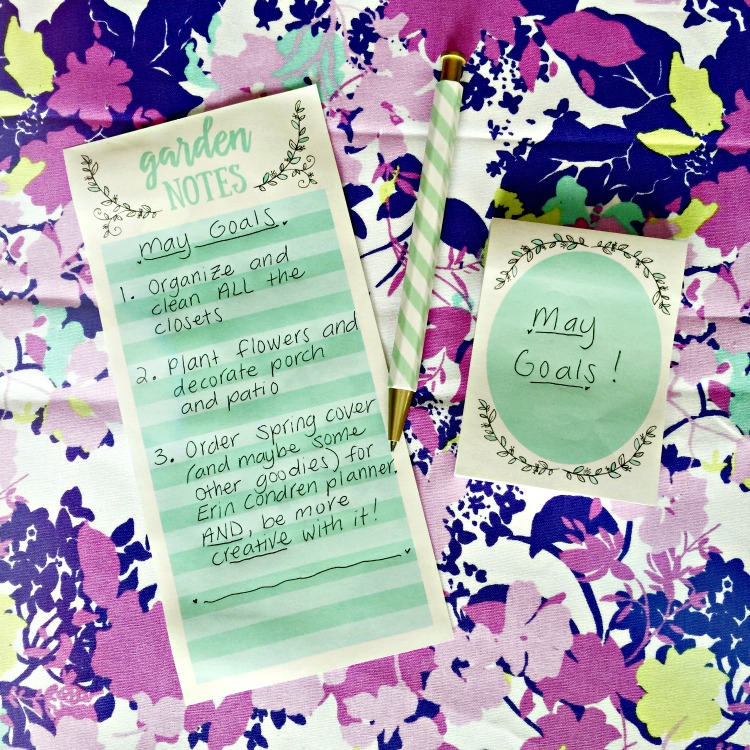 garden
NOTES
May Goals
1. Organize and
clean ALL the
closets
2. Plant flowers and
decorate porch
and patio
3. Order Spring cover
(and maybe some
other goodies) for
Erin Condren planner.
AND, be more
creative with it!
May
Goals!